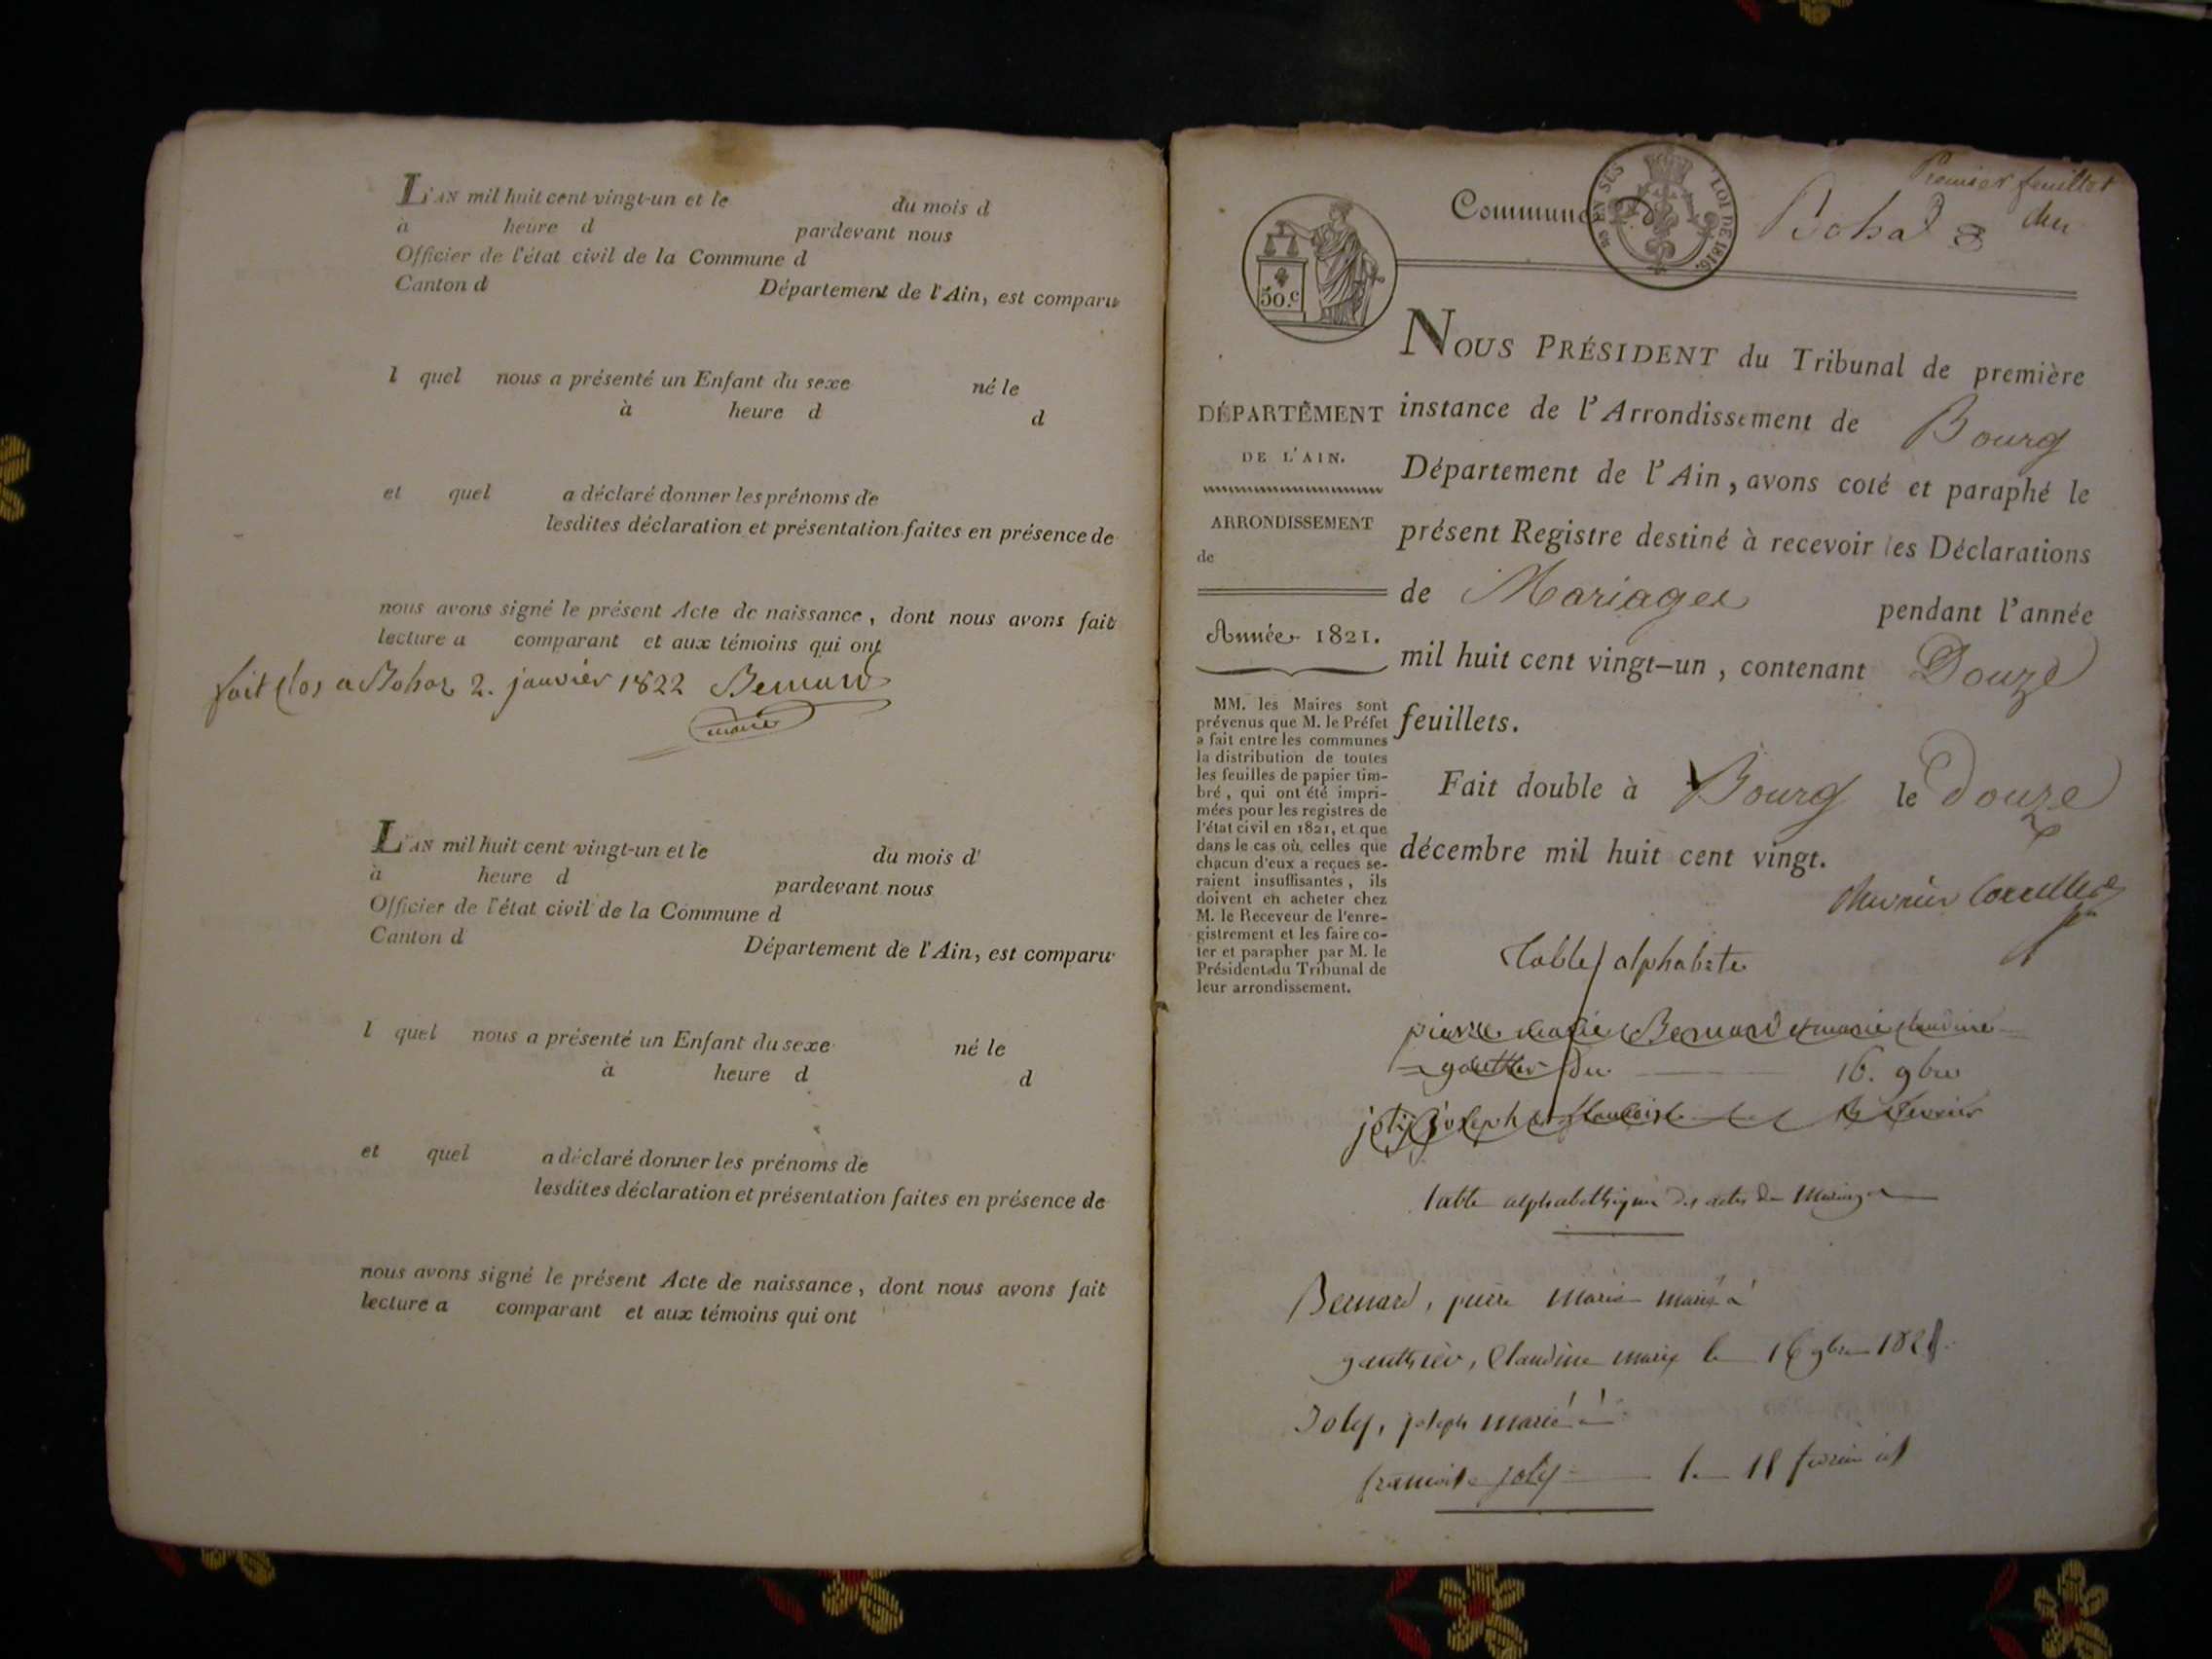 L'AN mil huit cent vingt-un et le du mois d
à heure d pardevant nous
Officier de l'état civil de la Commune d
Canton d Département de l'Ain, est comparu
l quel nous a présenté un Enfant du sexe né le
à heure d d
et quel a déclaré donner les prénoms de
lesdites déclaration et présentation faites en présence de
nous avons signé le présent Acte de naissance, dont nous avons fait
lecture a comparant et aux témoins qui ont
fait clos a Bohaz 2. janvier 1822 Bernard
maire
L'AN mil huit cent vingt-un et le du mois d
à heure d pardevant nous
Officier de l'état civil de la Commune d
Canton d Département de l'Ain, est comparu
l quel nous a présenté un Enfant du sexe né le
à heure d d
et quel a déclaré donner les prénoms de
lesdites déclaration et présentation faites en présence de
nous avons signé le présent Acte de naissance, dont nous avons fait
lecture a comparant et aux témoins qui ont
Premier feuillet
Commune
EN SUS
LOI DE 1816.
50.c
NOUS PRÉSIDENT du Tribunal de première
instance de l'Arrondissement de Bourg
Département de l'Ain, avons coté et paraphé le
présent Registre destiné à recevoir les Déclarations
de Mariages pendant l'année
mil huit cent vingt-un, contenant Douze
feuillets.
Fait double à Bourg le Douze
décembre mil huit cent vingt.
DÉPARTEMENT
DE L'AIN.
ARRONDISSEMENT
de
Année 1821.
MM. les Maires sont
prévenus que M. le Préfet
a fait entre les communes
la distribution de toutes
les feuilles de papier tim-
bré, qui ont été impri-
mées pour les registres de
l'état civil en 1821, et que
dans le cas où celles que
chacun d'eux a reçues se-
raient insuffisantes, ils
doivent en acheter chez
M. le Receveur de l'enre-
gistrement et les faire co-
ter et parapher par M. le
Président du Tribunal de
leur arrondissement.
Table alphabete
pierre marie Bernard et marie claudine
gauthier du 16. 9bre
joly joseph et francoise fevrier
table alphabethique des actes de Mariage
Bernard, pierre Marie marié à
gauthier, Claudine marie le 16 9bre 1821
Joly, joseph marié à
francoise joly le 18 fevrier